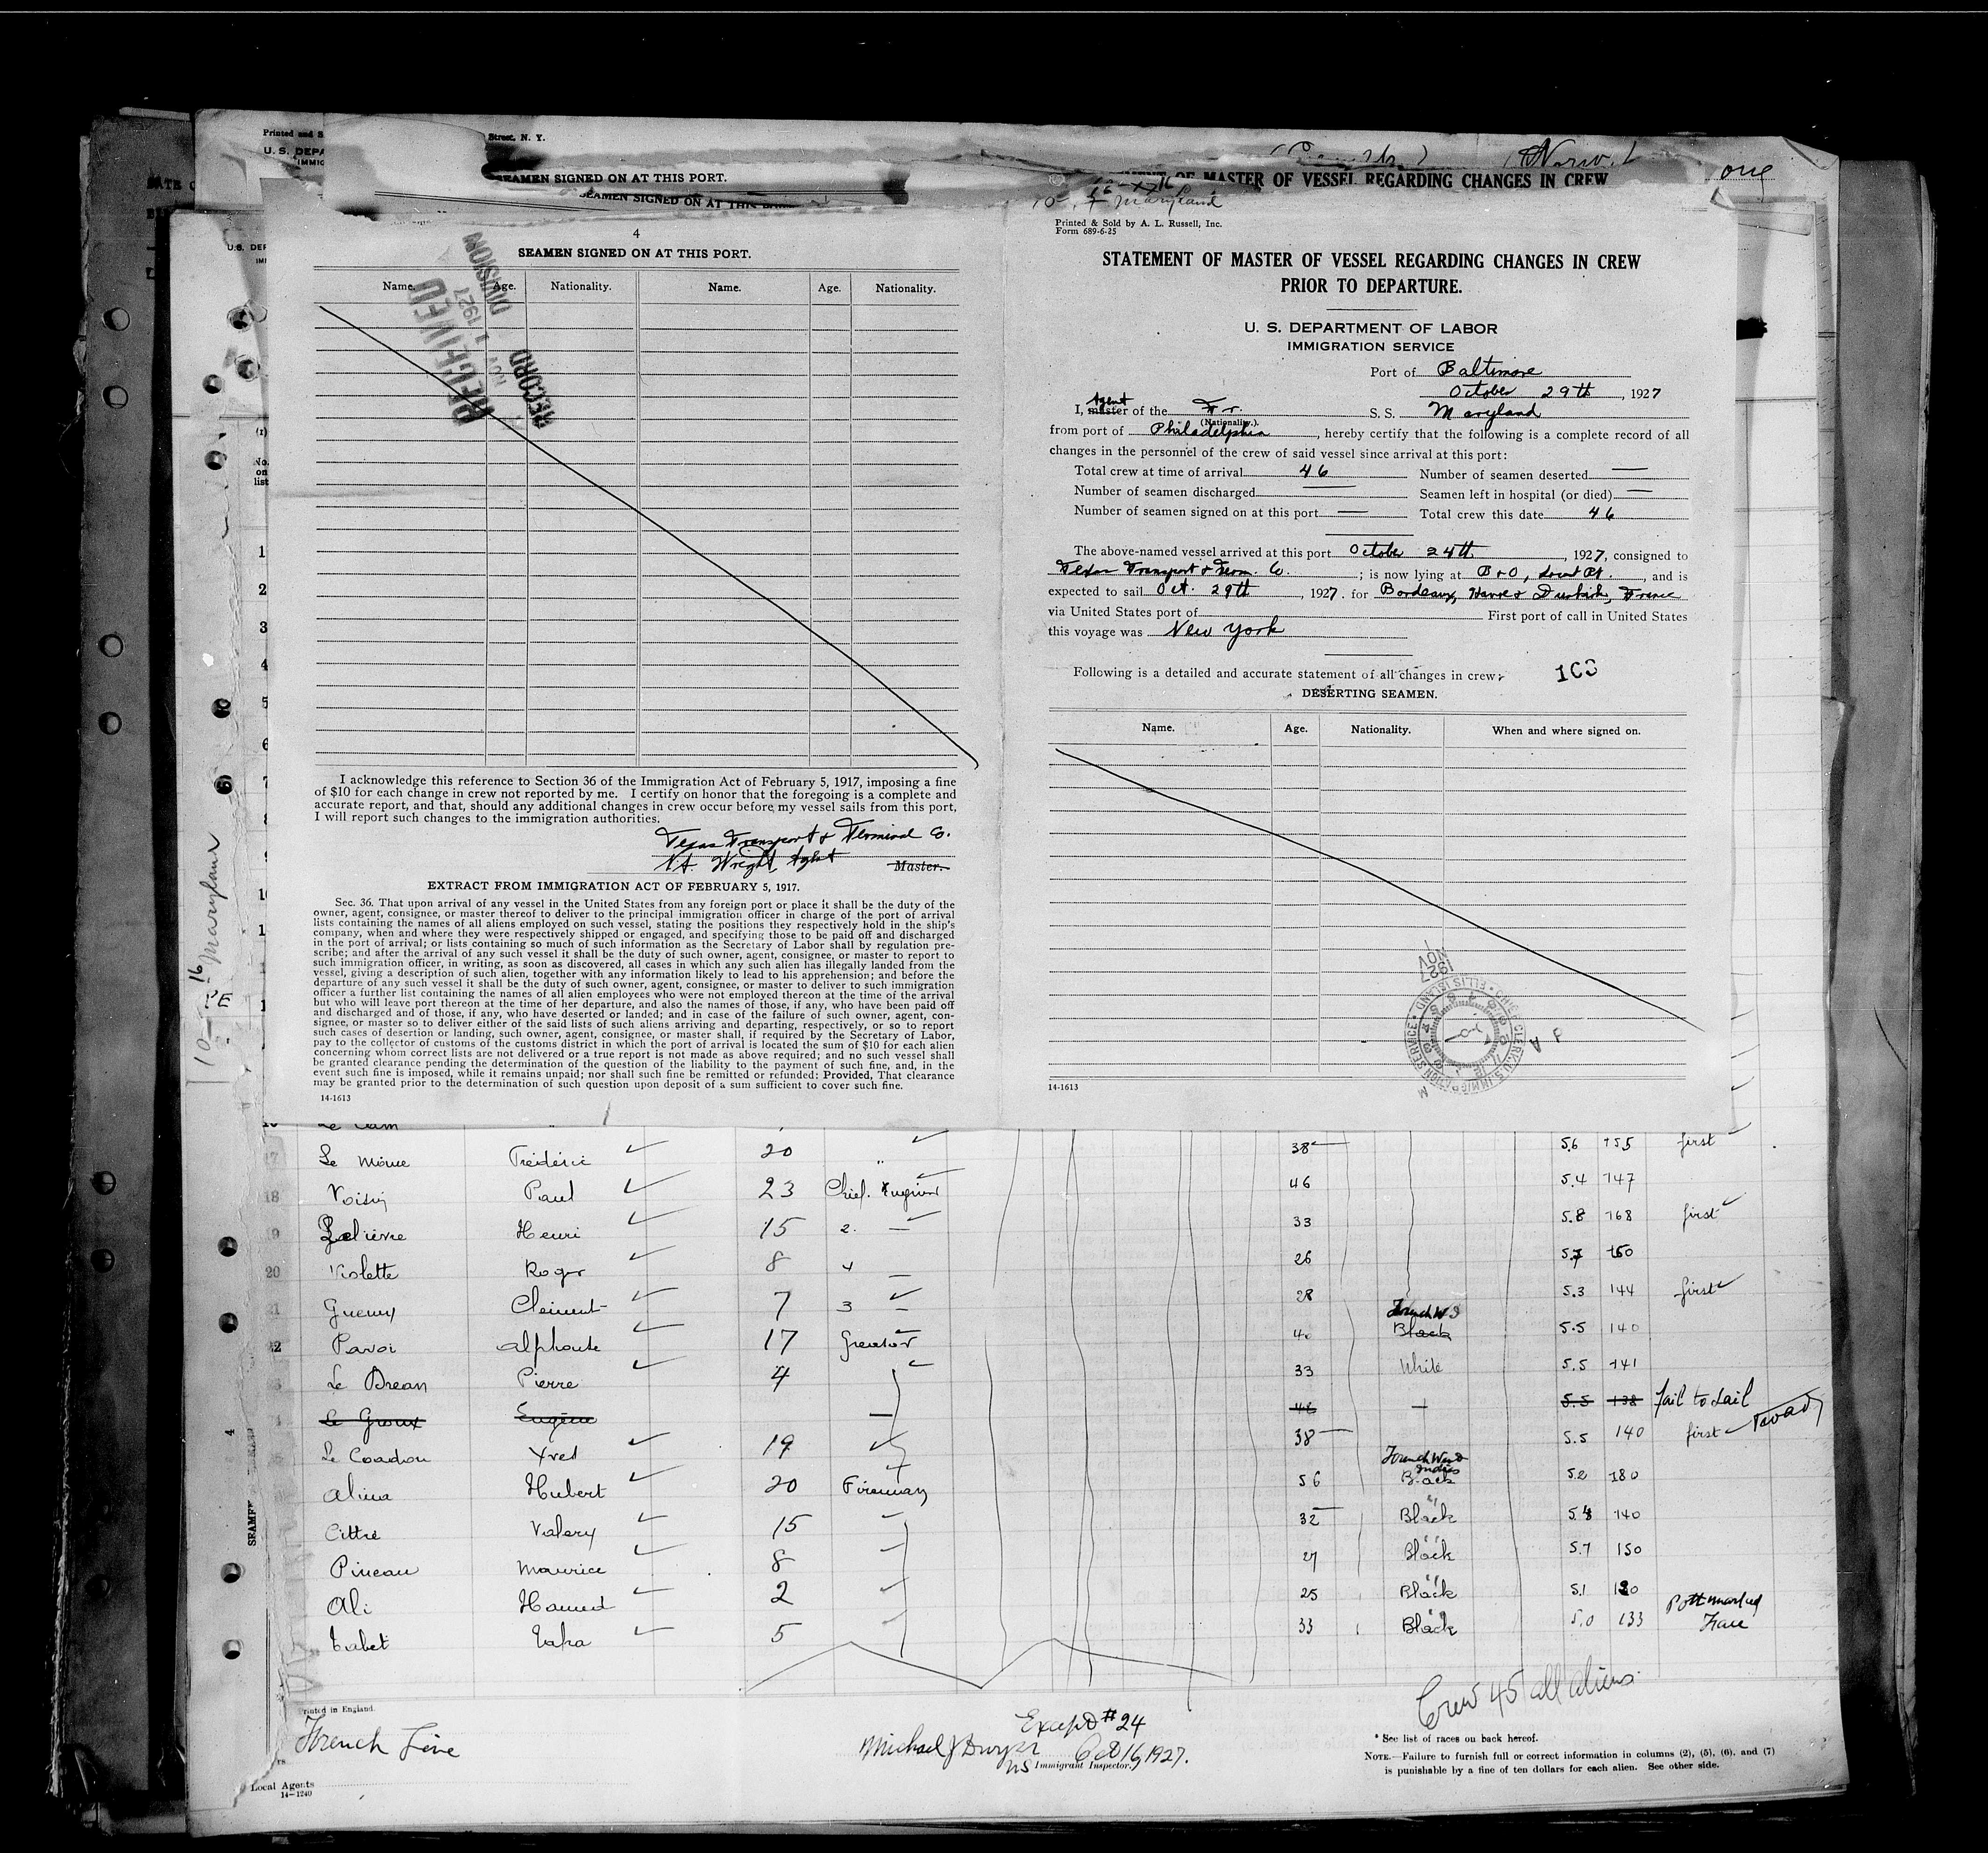 Printed and S
Street, N. Y.
U. S. DEPA
IMMIG
SEAMEN SIGNED ON AT THIS PORT.
SEAMEN SIGNED ON AT THIS
MASTER OF VESSEL REGARDING CHANGES IN CREW
one
4
SEAMEN SIGNED ON AT THIS PORT.
Name. Age. Nationality. Name. Age. Nationality.
RECEIVED
NOV 1 1927
RECORD DIVISION
I acknowledge this reference to Section 36 of the Immigration Act of February 5, 1917, imposing a fine
of $10 for each change in crew not reported by me. I certify on honor that the foregoing is a complete and
accurate report, and that, should any additional changes in crew occur before my vessel sails from this port,
I will report such changes to the immigration authorities.
Texas Transport & Terminal Co.
Wright Agent Master.
EXTRACT FROM IMMIGRATION ACT OF FEBRUARY 5, 1917.
Sec. 36. That upon arrival of any vessel in the United States from any foreign port or place it shall be the duty of the
owner, agent, consignee, or master thereof to deliver to the principal immigration officer in charge of the port of arrival
lists containing the names of all aliens employed on such vessel, stating the positions they respectively hold in the ship's
company, when and where they were respectively shipped or engaged, and specifying those to be paid off and discharged
in the port of arrival; or lists containing so much of such information as the Secretary of Labor shall by regulation pre-
scribe; and after the arrival of any such vessel it shall be the duty of such owner, agent, consignee, or master to report to
such immigration officer, in writing, as soon as discovered, all cases in which any such alien has illegally landed from the
vessel, giving a description of such alien, together with any information likely to lead to his apprehension; and before the
departure of any such vessel it shall be the duty of such owner, agent, consignee, or master to deliver to such immigration
officer a further list containing the names of all alien employees who were not employed thereon at the time of the arrival
but who will leave port thereon at the time of her departure, and also the names of those, if any, who have been paid off
and discharged and of those, if any, who have deserted or landed; and in case of the failure of such owner, agent, con-
signee, or master so to deliver either of the said lists of such aliens arriving and departing, respectively, or so to report
such cases of desertion or landing, such owner, agent, consignee, or master shall, if required by the Secretary of Labor,
pay to the collector of customs of the customs district in which the port of arrival is located the sum of $10 for each alien
concerning whom correct lists are not delivered or a true report is not made as above required; and no such vessel shall
be granted clearance pending the determination of the question of the liability to the payment of such fine, and, in the
event such fine is imposed, while it remains unpaid; nor shall such fine be remitted or refunded: Provided, That clearance
may be granted prior to the determination of such question upon deposit of a sum sufficient to cover such fine.
14-1613
Maryland
Printed & Sold by A. L. Russell, Inc.
Form 689-6-25
STATEMENT OF MASTER OF VESSEL REGARDING CHANGES IN CREW
PRIOR TO DEPARTURE.
U. S. DEPARTMENT OF LABOR
IMMIGRATION SERVICE
Port of Baltimore
October 29th, 1927
Agent
I, master of the Fr. S. S. Maryland
(Nationality.)
from port of Philadelphia, hereby certify that the following is a complete record of all
changes in the personnel of the crew of said vessel since arrival at this port:
Total crew at time of arrival 46 Number of seamen deserted —
Number of seamen discharged — Seamen left in hospital (or died) —
Number of seamen signed on at this port — Total crew this date 46
The above-named vessel arrived at this port October 24th, 1927, consigned to
Texas Transport & Term. Co.; is now lying at B&O, Locust Pt., and is
expected to sail Oct. 29th, 1927. for Bordeaux, Havre & Dunkirk, France
via United States port of First port of call in United States
this voyage was New York
Following is a detailed and accurate statement of all changes in crew:
103
DESERTING SEAMEN.
Name. Age. Nationality. When and where signed on.
1927 NOV 1
14-1613
10-16 Maryland
17 Le Frédéric 20 " 38 5.6 155 first
18 Voisin Paul 23 Chief 46 5.4 147
9 Lelièvre Henri 15 2. — 33 5.8 168 first
20 Violette Roger 8 — 26 5.7 150
21 Clément 7 3 — 28 5.3 144 first
22 Alphonse 17 40 French W I Black 5.5 140
Le Drean Pierre 4 33 White 5.5 141
Le Groux Eugène — 46 — 5.5 138 fail to sail
Le Coadou Yves 19 38 5.5 140 first
Alina Hubert 20 Fireman 56 French West Indies Black 5.2 180
Valery 15 32 " Black 5.8 140
Pineau Maurice 8 27 " Black 5.7 150
Ali Hamed 2 25 " Black 5.1 120
Tabet 5 33 " Black 5.0 133 Pottmarked Face
Crew 45 all aliens
Printed in England.
French Line
Except #24
Michael J Dwyer Oct 16, 1927.
US Immigrant Inspector.
* See list of races on back hereof.
NOTE.—Failure to furnish full or correct information in columns (2), (5), (6), and (7)
is punishable by a fine of ten dollars for each alien. See other side.
Local Agents
14—1240